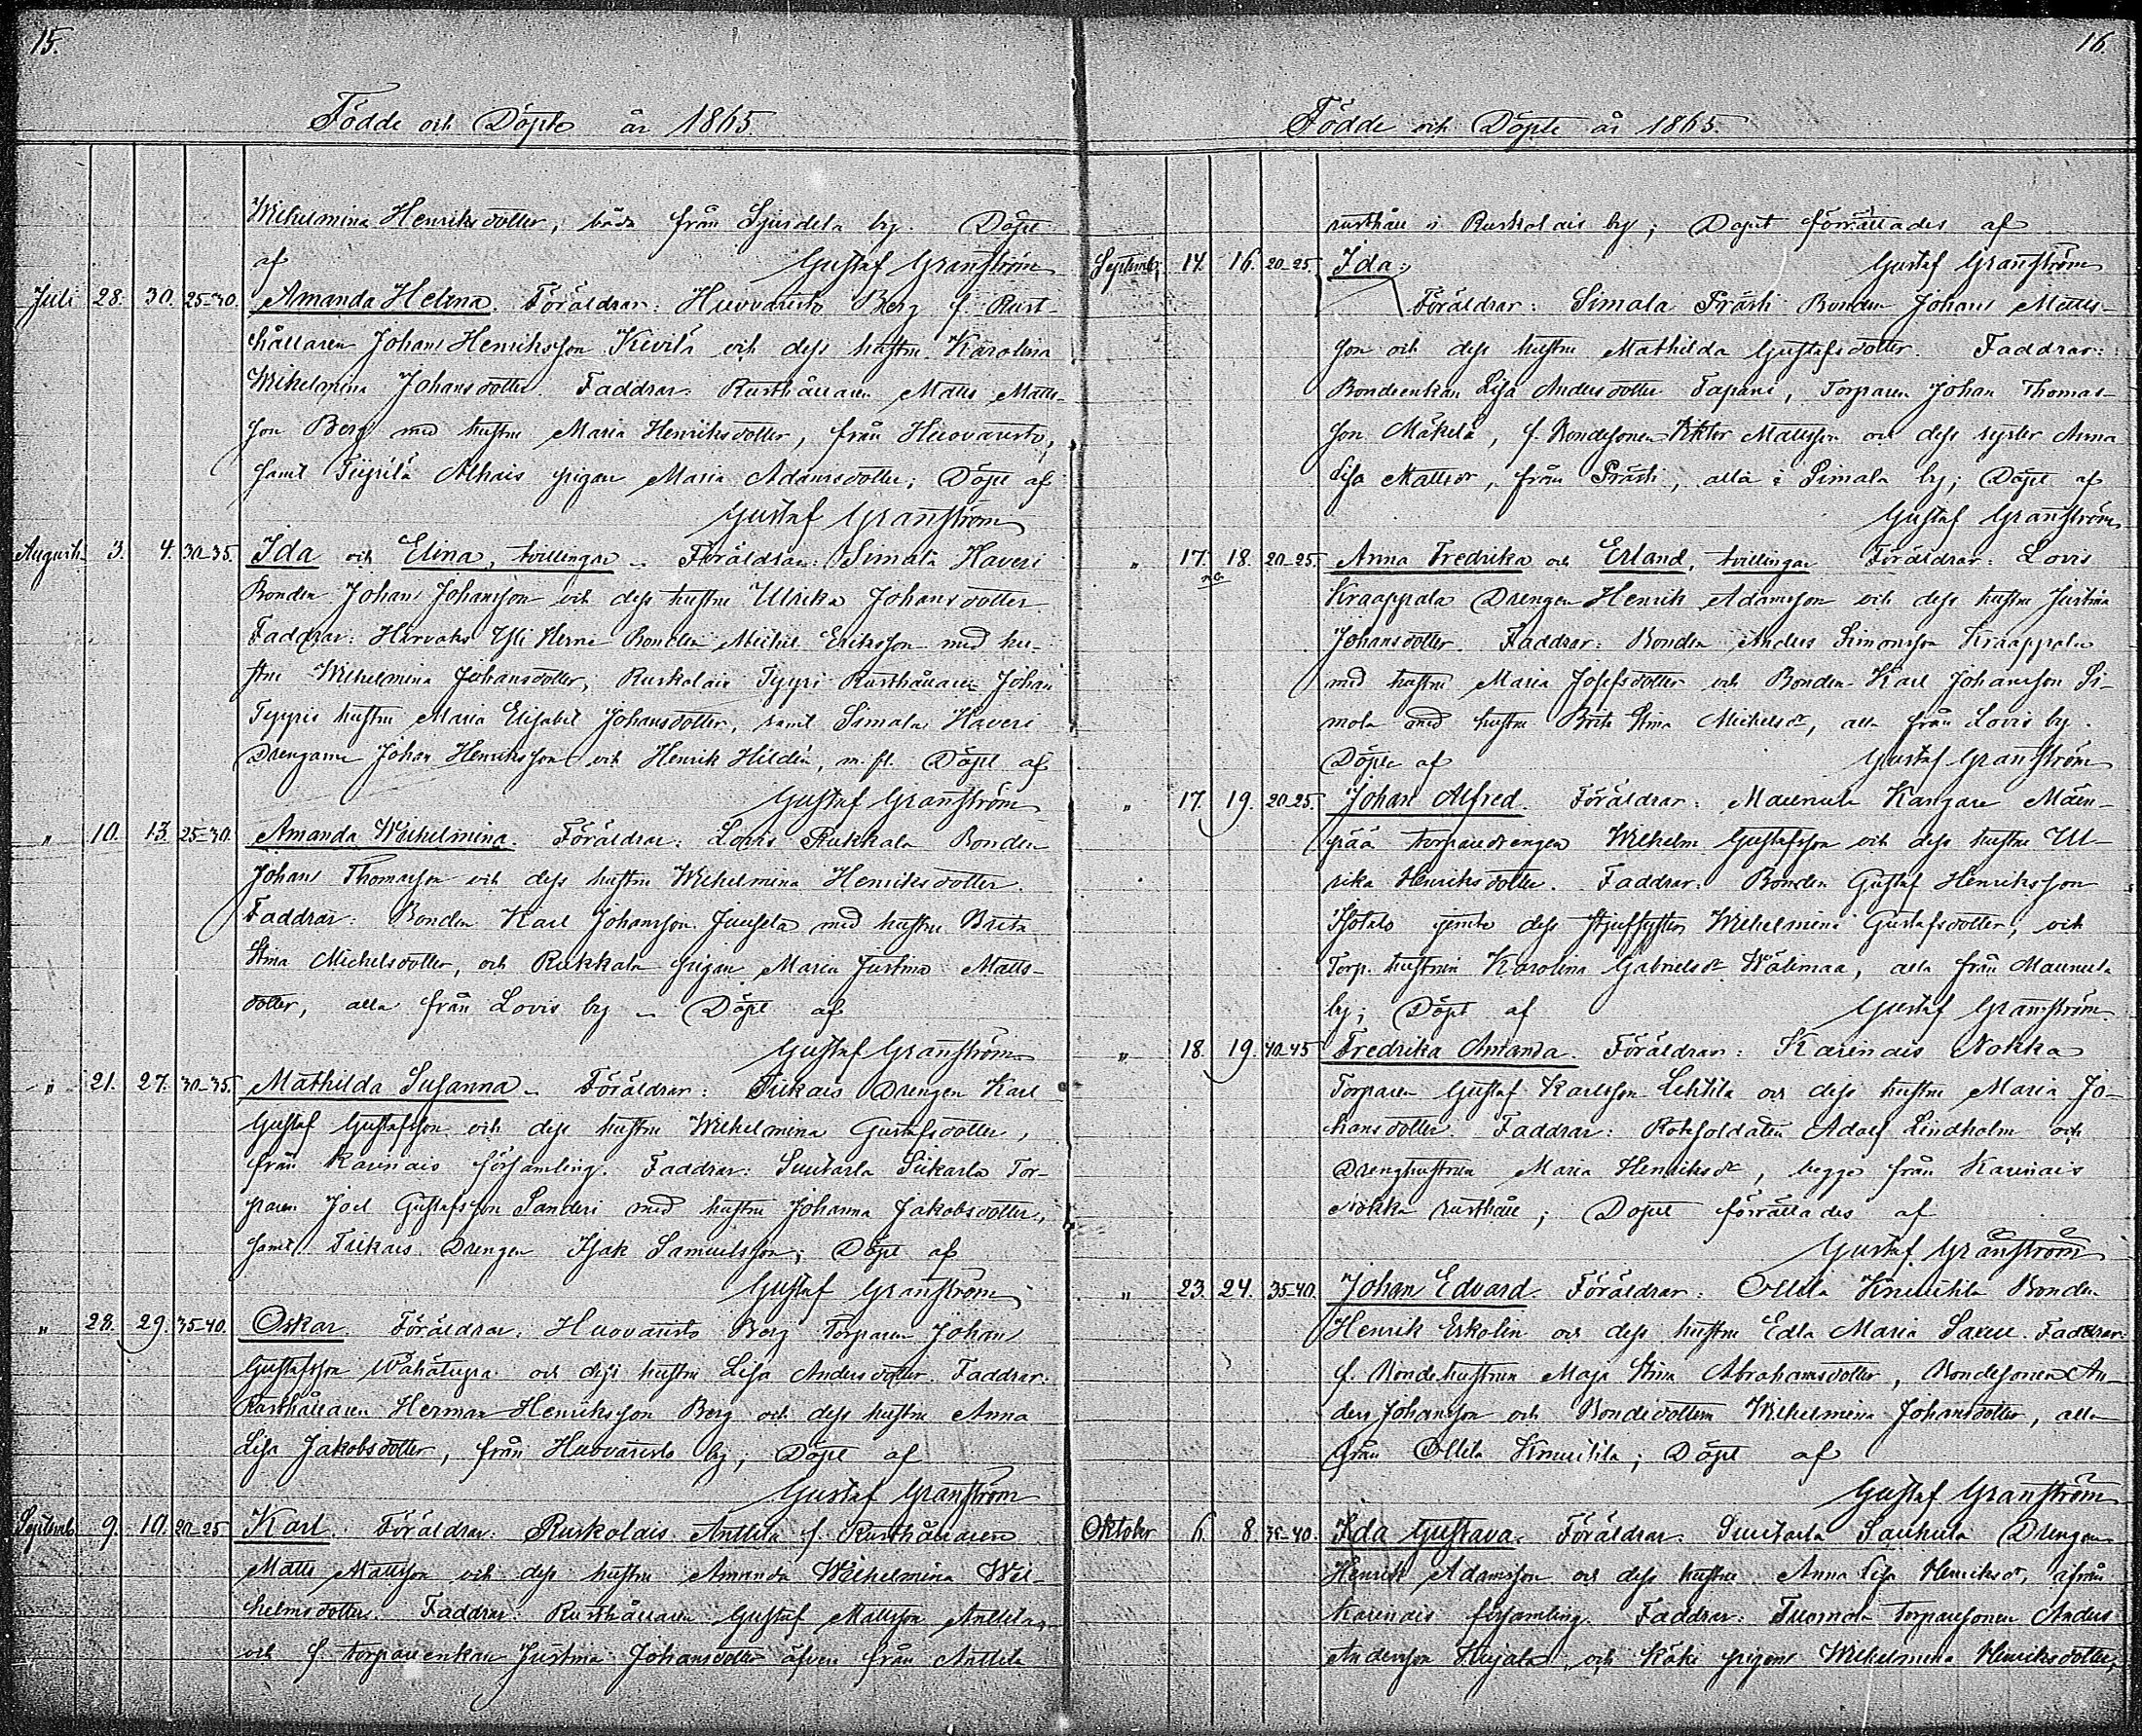 15.
Födde och Döpte år 1865
Wilhelmina Henriksdotter, båda från Sjusdela by. Döpt
af Gustaf Granström
Juli 28. 30. 25-30. Amanda Helena. Föräldrar: Huovaristo Berg f. Rust-
hållaren Johan Henriksson Kivilä och dess hustru Karolina
Wilhelmina Johansdotter. Faddrar: Rusthållaren Matts Matts-
son Berg med hustru Maria Henriksdotter, från Huovaristo,
samt Alhais pigan Maria Adamsdotter; Döpt af
Gustaf Granström
Augusti 3. 4. 30-35. Ida och Elina, tvillingar. Föräldrar: Simala Haveri
Bonden Johan Johansson och dess hustru Ulrika Johansdotter
Faddrar: Yli Herne Bonden Michel Eriksson med hu-
stru Wilhelmina Johansdotter, Ruskolais Tyyri Rusthållaren Johan
Tyyris hustru Maria Elisabet Johansdotter, samt Simala Haveri
Drengarne Johan Henriksson och Henrik Hildén, m. fl. Döpt af
Gustaf Granström
" 10. 13. 25-30. Amanda Wilhelmina. Föräldrar: Lovis Rukkala Bonden
Johan Thomasson och dess hustru Wilhelmina Henriksdotter.
Faddrar: Bonden Karl Johansson med hustru Brita
Stina Michelsdotter, och Rukkala pigan Maria Justina Matts-
dotter, alla från Lovis by. Döpt af
Gustaf Granström
" 21. 27. 30-35. Mathilda Susanna. Föräldrar: Drengen Karl
Gustaf Gustafsson och dess hustru Wilhelmina Gustafsdotter,
från Karinais församling. Faddrar: Suutarla Tor-
paren Joel Gustafsson Sanderi med hustru Johanna Jakobsdotter,
samt Drengen Isak Samuelsson; Döpt af
Gustaf Granström
" 28. 29. 35-40. Oskar. Föräldrar: Huovaristo Berg Torparen Johan
Gustafsson och dess hustru Lisa Andersdotter. Faddrar:
Rusthållaren Herman Henriksson Berg och dess hustru Anna
Lisa Jakobsdotter, från Huovaristo by; Döpt af
Gustaf Granström
Septemb. 9. 10. 20-25 Karl. Föräldrar: Ruskolais Anttila f. Rusthållaren
Matts Mattsson och dess hustru Amanda Wilhelmina Wil-
helmsdotter. Faddrar: Rusthållaren Gustaf Mattsson Anttila,
och f. torparenkan Justina Johansdotter äfven från Anttila
16.
Födde och Döpte år 1865.
rusthåll i Ruskolais by; Dopet förrättades af
Septemb. 14. 16. 20-25. Ida. Gustaf Granström
Föräldrar: Simala Prästi Bonden Johan Matts-
son och dess hustru Mathilda Gustafsdotter. Faddrar:
Bondeenkan Lisa Andersdotter Tapani, Torparen Johan Thomas-
son Mäkelä, f. Bondesonen Viktor Mattsson och dess syster Anna
Lisa Mattsdr, från Prästi, alla i Simala by; Döpt af
Gustaf Granström
" 17. 18. 20-25. Anna Fredrika och Erland, tvillingar. Föräldrar: Lovis
Kraappala Drengen Henrik Adamsson och dess hustru Justina
Johansdotter. Faddrar: Bonden Anders Simonsson Kraappala
med hustru Maria Josefsdotter och Bonden Karl Johansson Si-
mola med hustru Brita Stina Michelsdr, alla från Lovis by.
Döpte af Gustaf Granström
" 17. 19. 20-25. Johan Alfred. Föräldrar: Maunula Kangare Mäen-
pää torparedrengen Wilhelm Gustafsson och dess hustru Ul-
rika Henriksdotter. Faddrar: Bonden Gustaf Henriksson
Isotalo jemte dess Wilhelmina Gustafsdotter, och
Torp. hustrun Karolina Gabrielsdr Wälimaa, alla från Maunula
by; Döpt af Gustaf Granström
" 18. 19. 40-45 Fredrika Amanda. Föräldrar: Karinais Nokka
Torparen Gustaf Karlsson Lehtilä och dess hustru Maria Jo-
hansdotter. Faddrar: Rotesoldaten Adolf Lindholm och
Drenghustrun Maria Henriksdr, begge från Karinais
Nokka rusthåll; Dopet förrättades af
Gustaf Granström
" 23. 24. 35-40. Johan Edvard. Föräldrar: Ollila Knuutila Bonden
Henrik Erkolin och dess hustru Edla Maria Faddrar:
f. Bondehustrun Maja Stina Abrahamsdotter, Bondesonen An-
ders Johansson och Bondedottern Wilhelmina Johansdotter, alla
från Ollila Knuutila; Döpt af
Gustaf Granström
Oktober 6. 8. 35-40. Ida Gustava. Föräldrar: Suutarla Drengen
Henrik Adamsson och dess hustru Anna Lisa Henriksdr, ifrån
Karinais församling. Faddrar: Tuomola torparesonen Anders
Andersson Kujala, och Käki pigan Wilhelmina Henriksdotter,